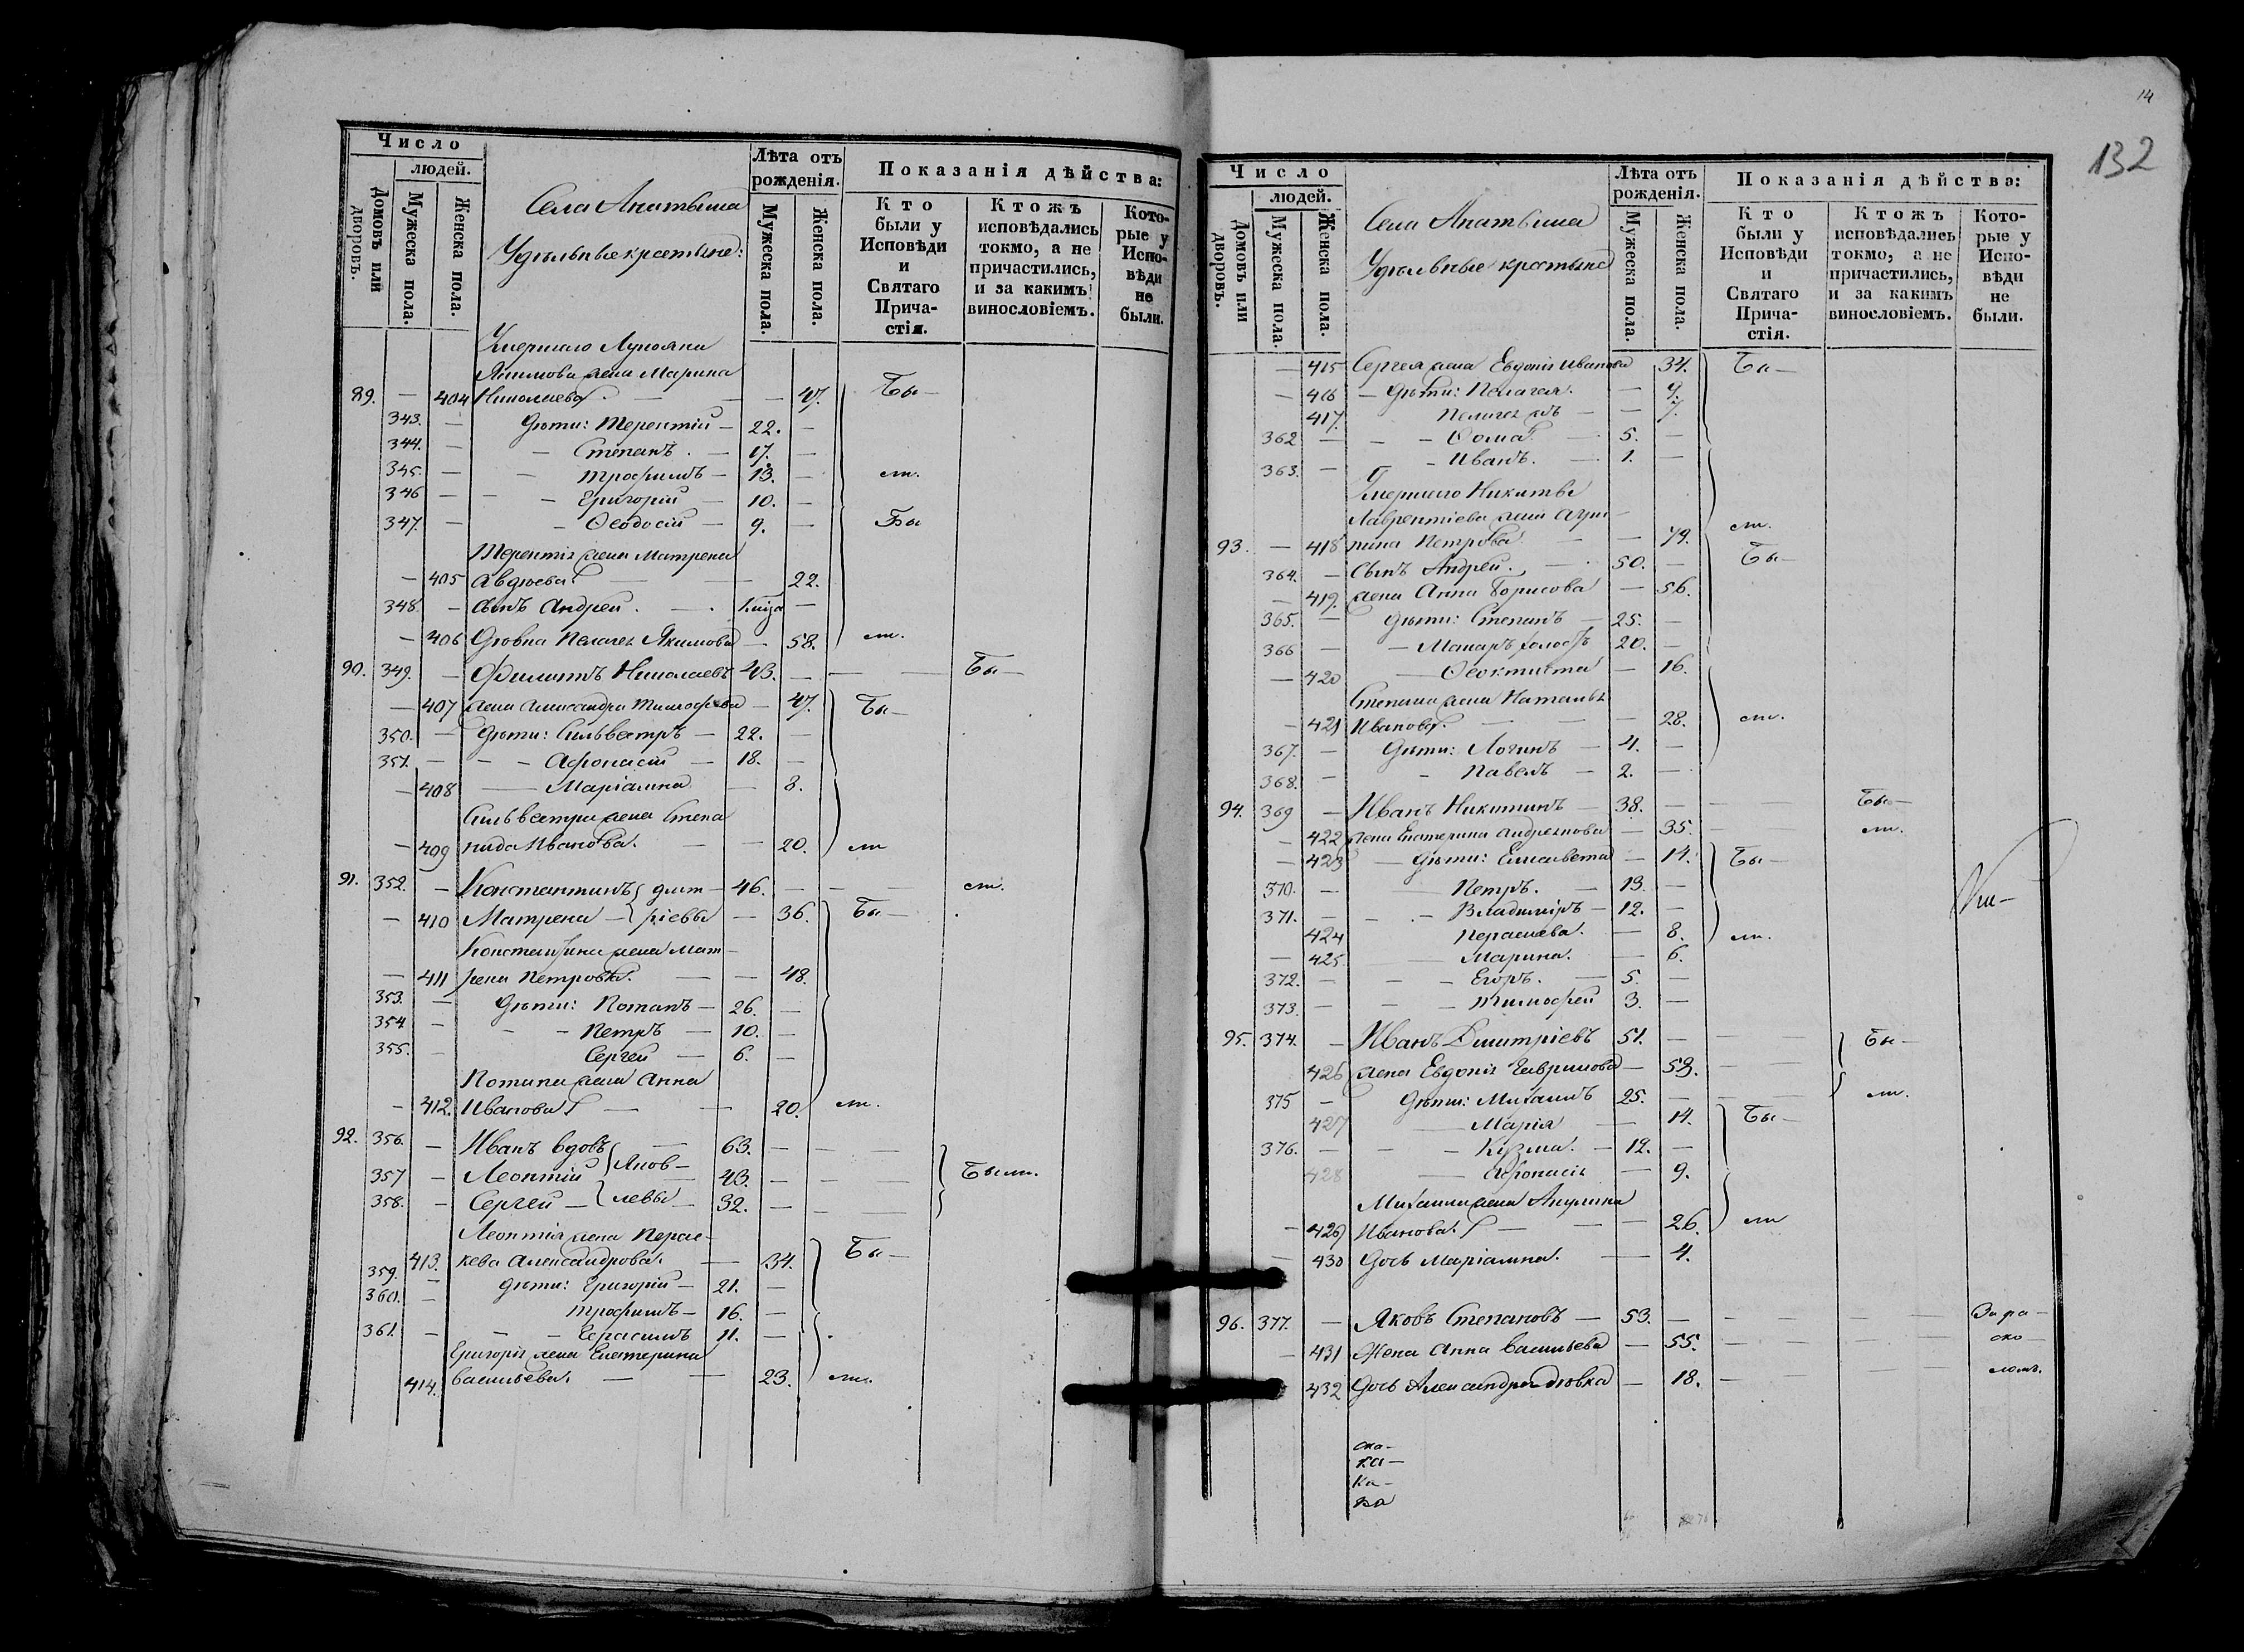 Число
людей.
Домовъ или дворовъ.
Мужеска пола.
Женска пола.
Села
Удѣльные крестьяне:
Лѣта отъ рожденія.
Мужеска пола.
Женска пола.
Показанія дѣйства:
Кто были у Исповѣди и Святаго Прича-стія.
Ктожъ исповѣдались токмо, а не причастились, и за какимъ винословіемъ.
Кото-рые у Испо-вѣди не были.
Умершаго
жена Марина
89. — 404 Николаева. — — 47. Бы—
343. — Дѣти: Терентій — 22. —
344. — — Степанъ. — 17. —
345. — — Трофимъ — 13. — ли.
346 — — Григорій — 10. —
347. — — Ѳеодосій — 9. — Бы
Терентія жена Матрена
— 405 Авдѣева. — — 22.
348. — Сынъ Андрей. — —
— 406 Пелагея Якимова — 58. ли.
90. 349. — Филиппъ Николаевъ 43. — — — Бы—
— 407 жена Александра Тимофѣева — 47. Бы—
350. — Дѣти: Сильвестръ — 22. —
351. — — — Афонасій — 18. —
— 408 — Маріамна — 8.
Сильвестра жена Степа
— 409 нида Иванова. — — 20. ли
91. 352. — Константинъ Дмит— 46. — — — ли.
— 410 Матрена — ріевы — 36. Бы—
Константина жена Мат—
— 411 рена Петрова. — — 48.
353. — Дѣти: Потапъ — 26. —
354. — — — Петръ — 10. —
355. — Сергей — 6. —
Потапа жена Анна
— 412. Иванова — — 20. ли.
92. 356. — Иванъ вдовъ — 63. — — —
357 — Леонтій Яков— 43. — — — Были.
358. — Сергей — левы — 32. — — —
Леонтія жена Парас—
413. кева Александрова. — 34. Бы—
359. — Дѣти: Григорій — 21. —
360. — Трофимъ — 16. —
361. — — — Герасимъ 11. —
Григорія жена Екатерина
414. Васильева. — — 23. ли.
14
132
Число
людей.
Домовъ или дворовъ.
Мужеска пола.
Женска пола.
Села
Удѣльные крестьяне
Лѣта отъ рожденія.
Мужеска пола.
Женска пола.
Показанія дѣйства:
Кто были у Исповѣди и Святаго Прича-стія.
Ктожъ исповѣдались токмо, а не причастились, и за какимъ винословіемъ.
Кото-рые у Испо-вѣди не были.
— 415 Сергея жена Евдокія Иванова 34. Бы—
— 416 — Дѣти: Пелагея. — 9.
417. — — 7.
362 — — — Ѳома. — 5. —
363. — — Иванъ. — 1. —
Умершаго Никиты
Лаврентіева жена Агри—
93. — 418 пина Петрова. — — 79. ли.
364. — Сынъ Андрей. — 50. — Бы—
— 419. жена Анна Борисова — 56.
365. — Дѣти: Степанъ — 25. —
366 — — Макаръ холостъ 20. —
— 420 — Ѳеоктиста — 16.
Степана жена Наталья
— 421 Иванова. — — — 28. ли.
367. — Дѣти: Логинъ — 4. —
368. — — Павелъ — 2. —
94. 369 — Иванъ Никитинъ — 38. — — — Бы—
— 422 жена Екатерина Андреянова — 35. — ли.
— 423 — Дѣти: Елисавета — 14. Бы—
370. — — Петръ. — 13. —
371. — — — Владиміръ — 12. —
424 Параскева. — 8. ли.
— 425. — Марина. — 6.
372. — — — Егоръ. — 5. —
373. — — — Тимофей 3. —
95. 374. — Иванъ Дмитріевъ 51. — — — Бы—
426 жена Евдокія Гаврилова — 53. — —
375 — Дѣти: Михаилъ 25. — — ли.
427 — Марія — 14. Бы—
376. — — — Кузма. — 12. —
428 — Афонасія — 9.
Михаила жена Акулина
— 429 Иванова. — — — 26 ли
— 430 Дочь Маріамна. — 4.
96. 377. — Яковъ Степановъ — 53. — — — — — За ра—
— 431 Жена Анна Васильева — 55. — — — — ско—
432 Дочь Александра дѣвка — 18. — — — — ломъ.